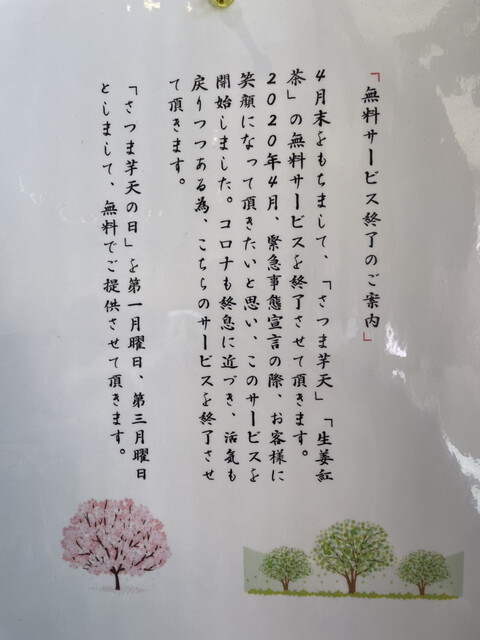 「無料サービス終了のご案内」
4月末をもちまして、「さつま芋天」「生姜紅
茶」の無料サービスを終了させて頂きます。
2020年4月、緊急事態宣言の際、お客様に
笑顔になって頂きたいと思い、このサービスを
開始しました。コロナも終息に近づき、活気も
戻りつつある為、こちらのサービスを終了させ
て頂きます。
「さつま芋天の日」を第一月曜日、第三月曜日
としまして、無料でご提供させて頂きます。